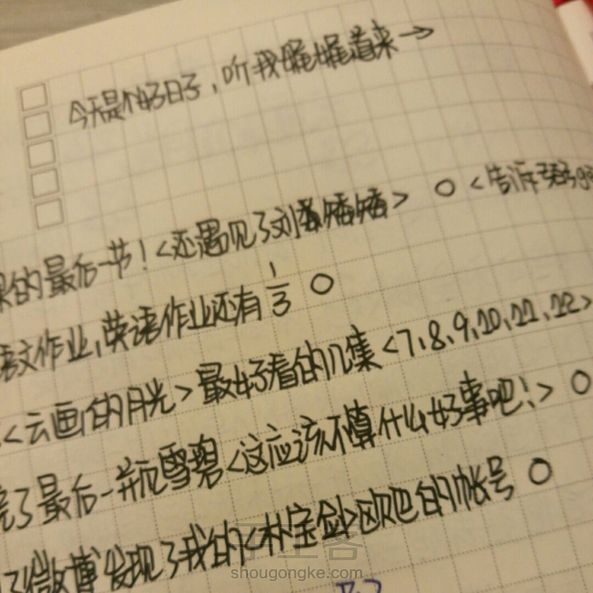 今天是个好日子，听我娓娓道来→
课的最后一节！<还遇见了刘 矫矫> ○ <告诉
语文作业，英语作业还有1/3 ○
<云画的月光>最好看的几集<7,8,9,10,11,12>
完了最后一瓶雪碧<这应该不算什么好事吧！> ○
了微博发现了我的<朴宝剑>欧巴的帐号 ○
手工客
shougongke.com